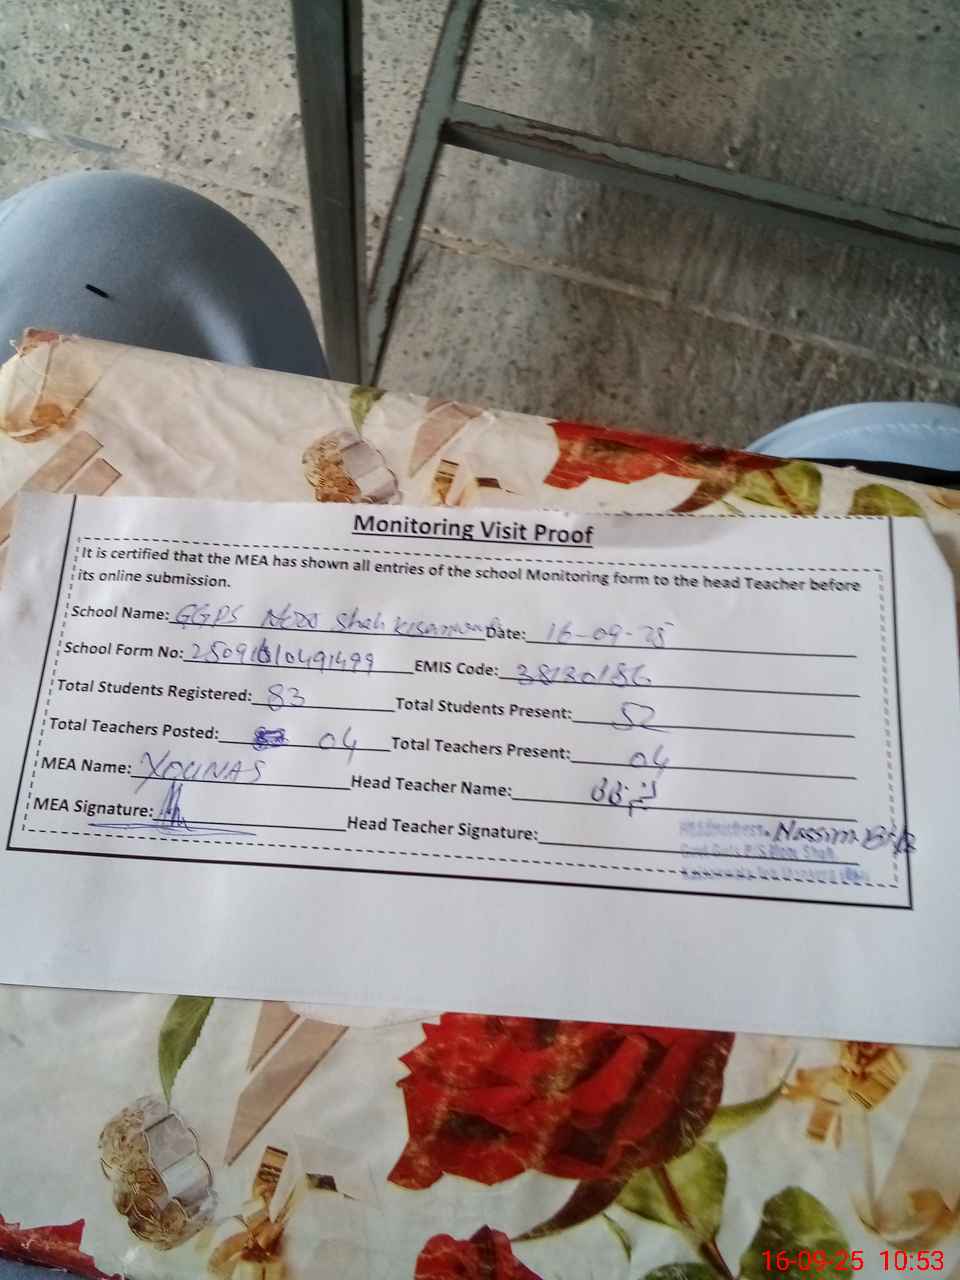 Monitoring Visit Proof
It is certified that the MEA has shown all entries of the school Monitoring form to the head Teacher before
its online submission.
School Name: GGPS Shah Date: 16-09-25
School Form No: EMIS Code: 38130186
Total Students Registered: 83 Total Students Present: 52
Total Teachers Posted: 04 Total Teachers Present: 04
MEA Name: YOUNAS Head Teacher Name:
MEA Signature: Head Teacher Signature: Headmistress Nassim Bibi
Shah
16-09-25 10:53